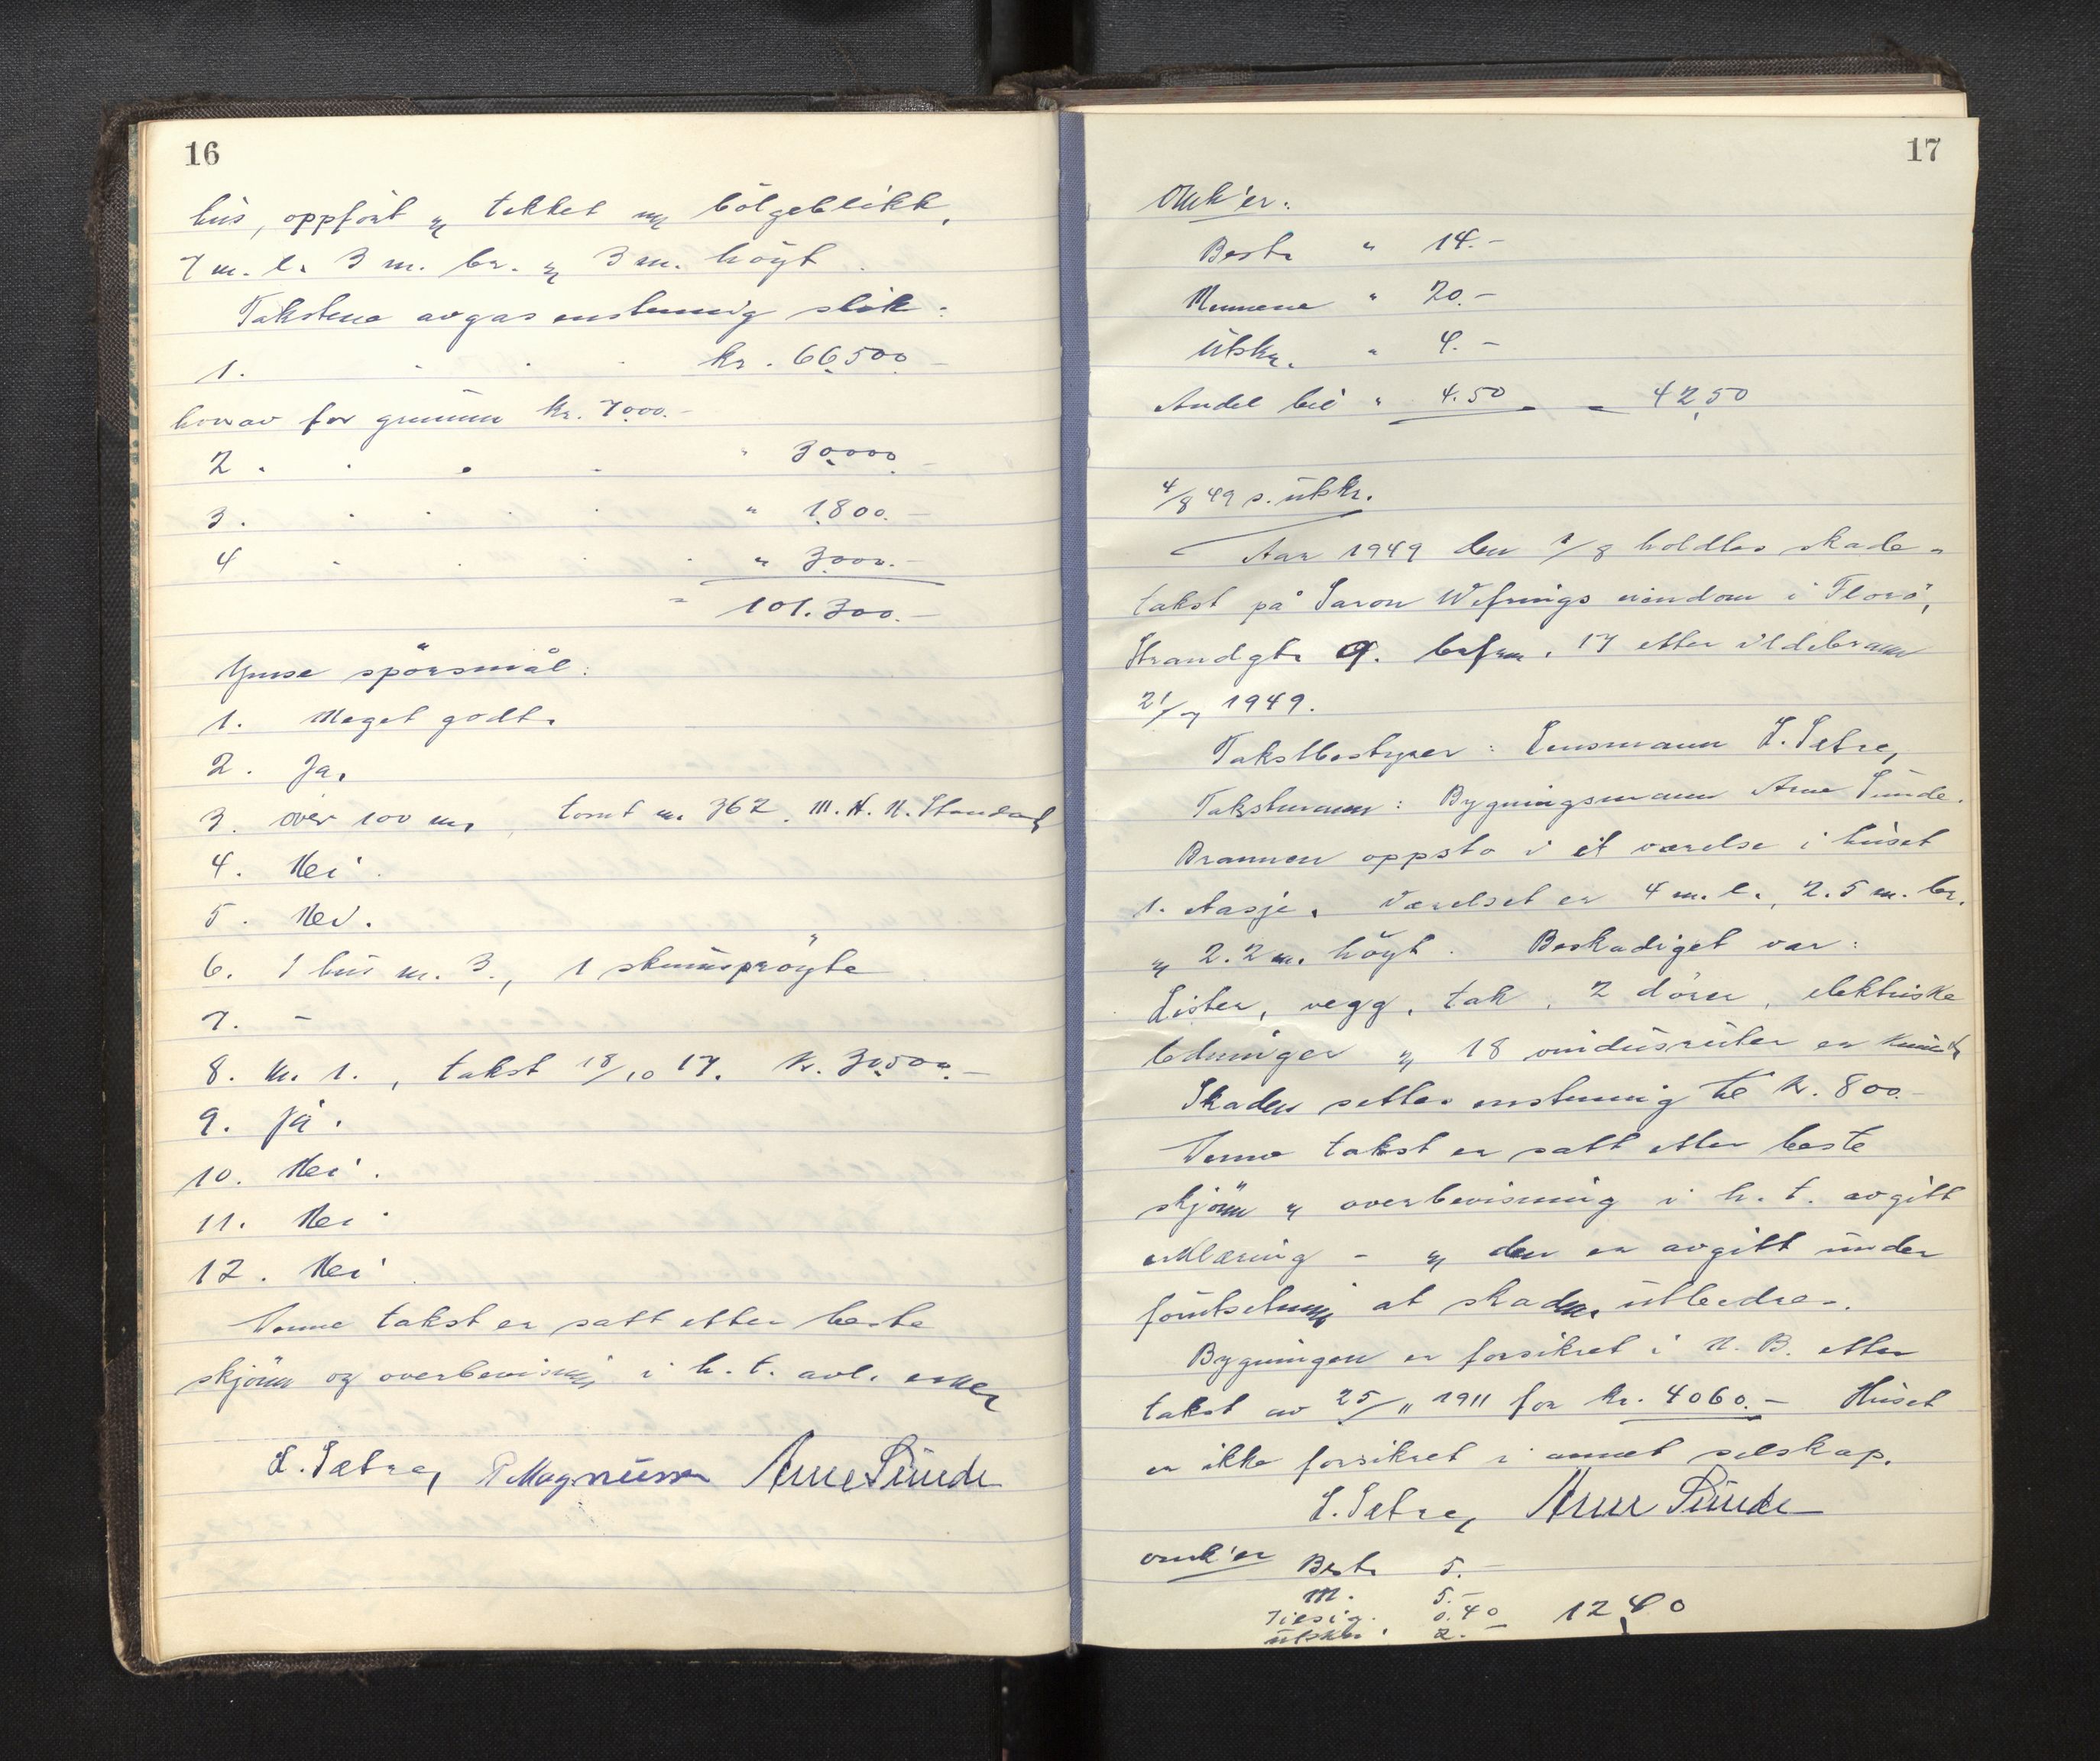 16
hus, oppført og tekket m/ bølgeblikk,
7 m. l. 3 m. br. og 3 m. høgt.
Takstene avgas enstemmig slik:
1. kr. 66.500.-
hvorav for grunnm kr. 7.000.-
2. " 30.000.-
3. " 1.800.-
4 " 3.000.-
" 101.300.-
Ymse spørsmål:
1. Meget godt.
2. Ja.
3. over 100 m, tomt nr. 362. M. H. N.
4. Nei.
5. Nei.
6. I hus nr. 3., 1 skumsprøyte
7. -
8. Nr. 1., takst 18/10 17. kr. 30.500.-
9. Ja.
10. Nei.
11. Nei.
12. Nei.
Denne takst er satt etter beste
skjønn og overbevisning i h. t. avl.
L. Sætre, Magnussen Arne Sunde
17
Omk'er:
Best. " 14.-
Mennene " 20.-
Utskr. " 4.-
Andel bil " 4.50 - 42,50
4/8 49 s. utskr.
Aar 1949 den 1/8 holdtes skade-
takst på Saron Wefrings eiendom i Florø,
Strandgt. 9. br. 17 etter ildebrann
21/7 1949.
Takstbestyrer: Lensmann L. Sætre,
Takstmann: Bygningsmann Arne Sunde.
Brannen oppsto i et værelse i huset
1. etasje. Værelset er 4 m. l., 2.5 m. br.
og 2.2 m. høgt. Beskadiget var:
Lister, vegg, tak, 2 dører, elektriske
ledninger og 18 vindusruter er knust
Skaden settes enstemmig til kr. 800.-
Denne takst er satt etter beste
skjønn og overbevisning i h. t. avgitt
erklæring - og den er avgitt under
forutsetning at skaden utbedres.
Bygningen er forsikret i N. B. etter
takst av 25/11 1911 for kr. 4060.- Huset
er ikke forsikret i annet selskap.
L. Sætre, Arne Sunde
omk'er Best. 5.-
M. 5.-
Tilsig. 0.40 12,40
utskr. 2.-